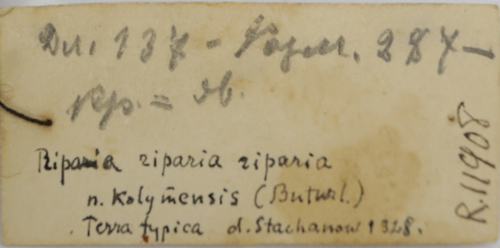 Det. 137 - 287 -
Kp. = ob.
Riparia riparia riparia
n. Kolymensis (Buturl.)
Terra typica d. Stachanow 1328.
R.11908